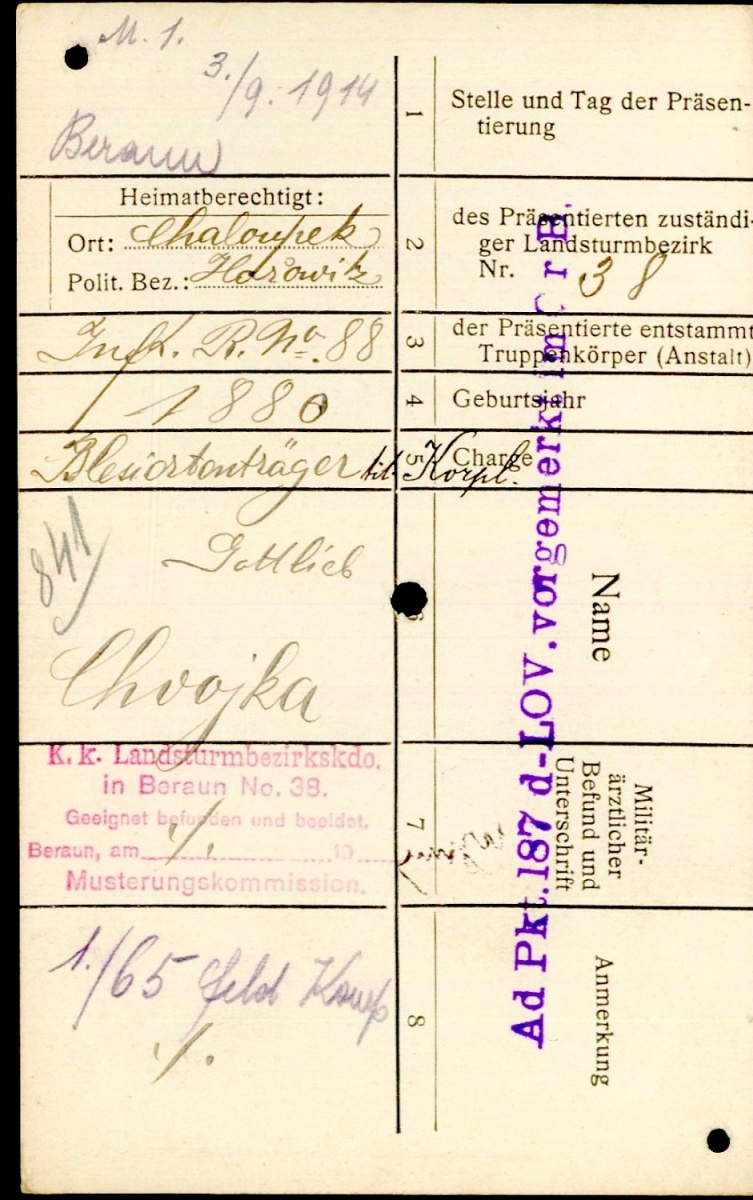 M. 1.
3./9. 1914
Beraun
1
Stelle und Tag der Präsen-
tierung
Heimatberechtigt:
Ort: Chaloupek
Polit. Bez.: Hořowitz
2
des Präsentierten zuständi-
ger Landsturmbezirk
Nr. 38
Inft. R. No. 88
3
der Präsentierte entstammt
Truppenkörper (Anstalt)
1880
4
Geburtsjahr
Blesiertenträger tit. Korpl.
5
Charge
841
Gottlieb
Chvojka
6
Name
K. k. Landsturmbezirkskdo.
in Beraun No. 38.
Geeignet befunden und beeidet.
Beraun, am 19
Musterungskommission.
·/.
7
Militär-
ärztlicher
Befund und
Unterschrift
1./65 Feld Komp
·/.
8
Anmerkung
Ad Pkt. 187 d-LOV. vorgemerkt im Gr B.